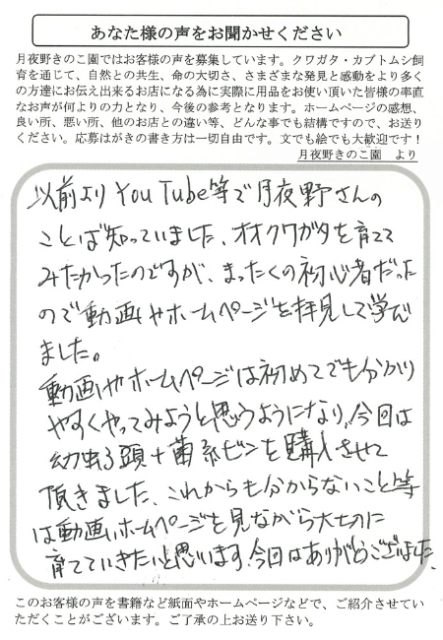 あなた様の声をお聞かせください
月夜野きのこ園ではお客様の声を募集しています。クワガタ・カブトムシ飼
育を通じて、自然との共生、命の大切さ、さまざまな発見と感動をより多く
の方達にお伝え出来るお店になる為に実際に用品をお使い頂いた皆様の率直
なお声が何よりの力となり、今後の参考となります。ホームページの感想、
良い所、悪い所、他のお店との違い等、どんな事でも結構ですので、お送り
ください。応募はがきの書き方は一切自由です。文でも絵でも大歓迎です！
月夜野きのこ園　より
以前よりYouTube等で月夜野さんの
ことは知っていました、オオクワガタを育てて
みたかったのですが、まったくの初心者だった
ので動画やホームページを拝見して学び
ました。
動画やホームページは初めてでも分かり
やすくやってみようと思うようになり、今回は
幼虫3頭+菌糸ビンを購入させて
頂きました、これからも分からないこと等
は動画、ホームページを見ながら大切に
育てていきたいと思います、今回はありがとうございました、
このお客様の声を書籍など紙面やホームページなどで、ご紹介させてい
ただくことがございます。ご了承の上お送り下さい。